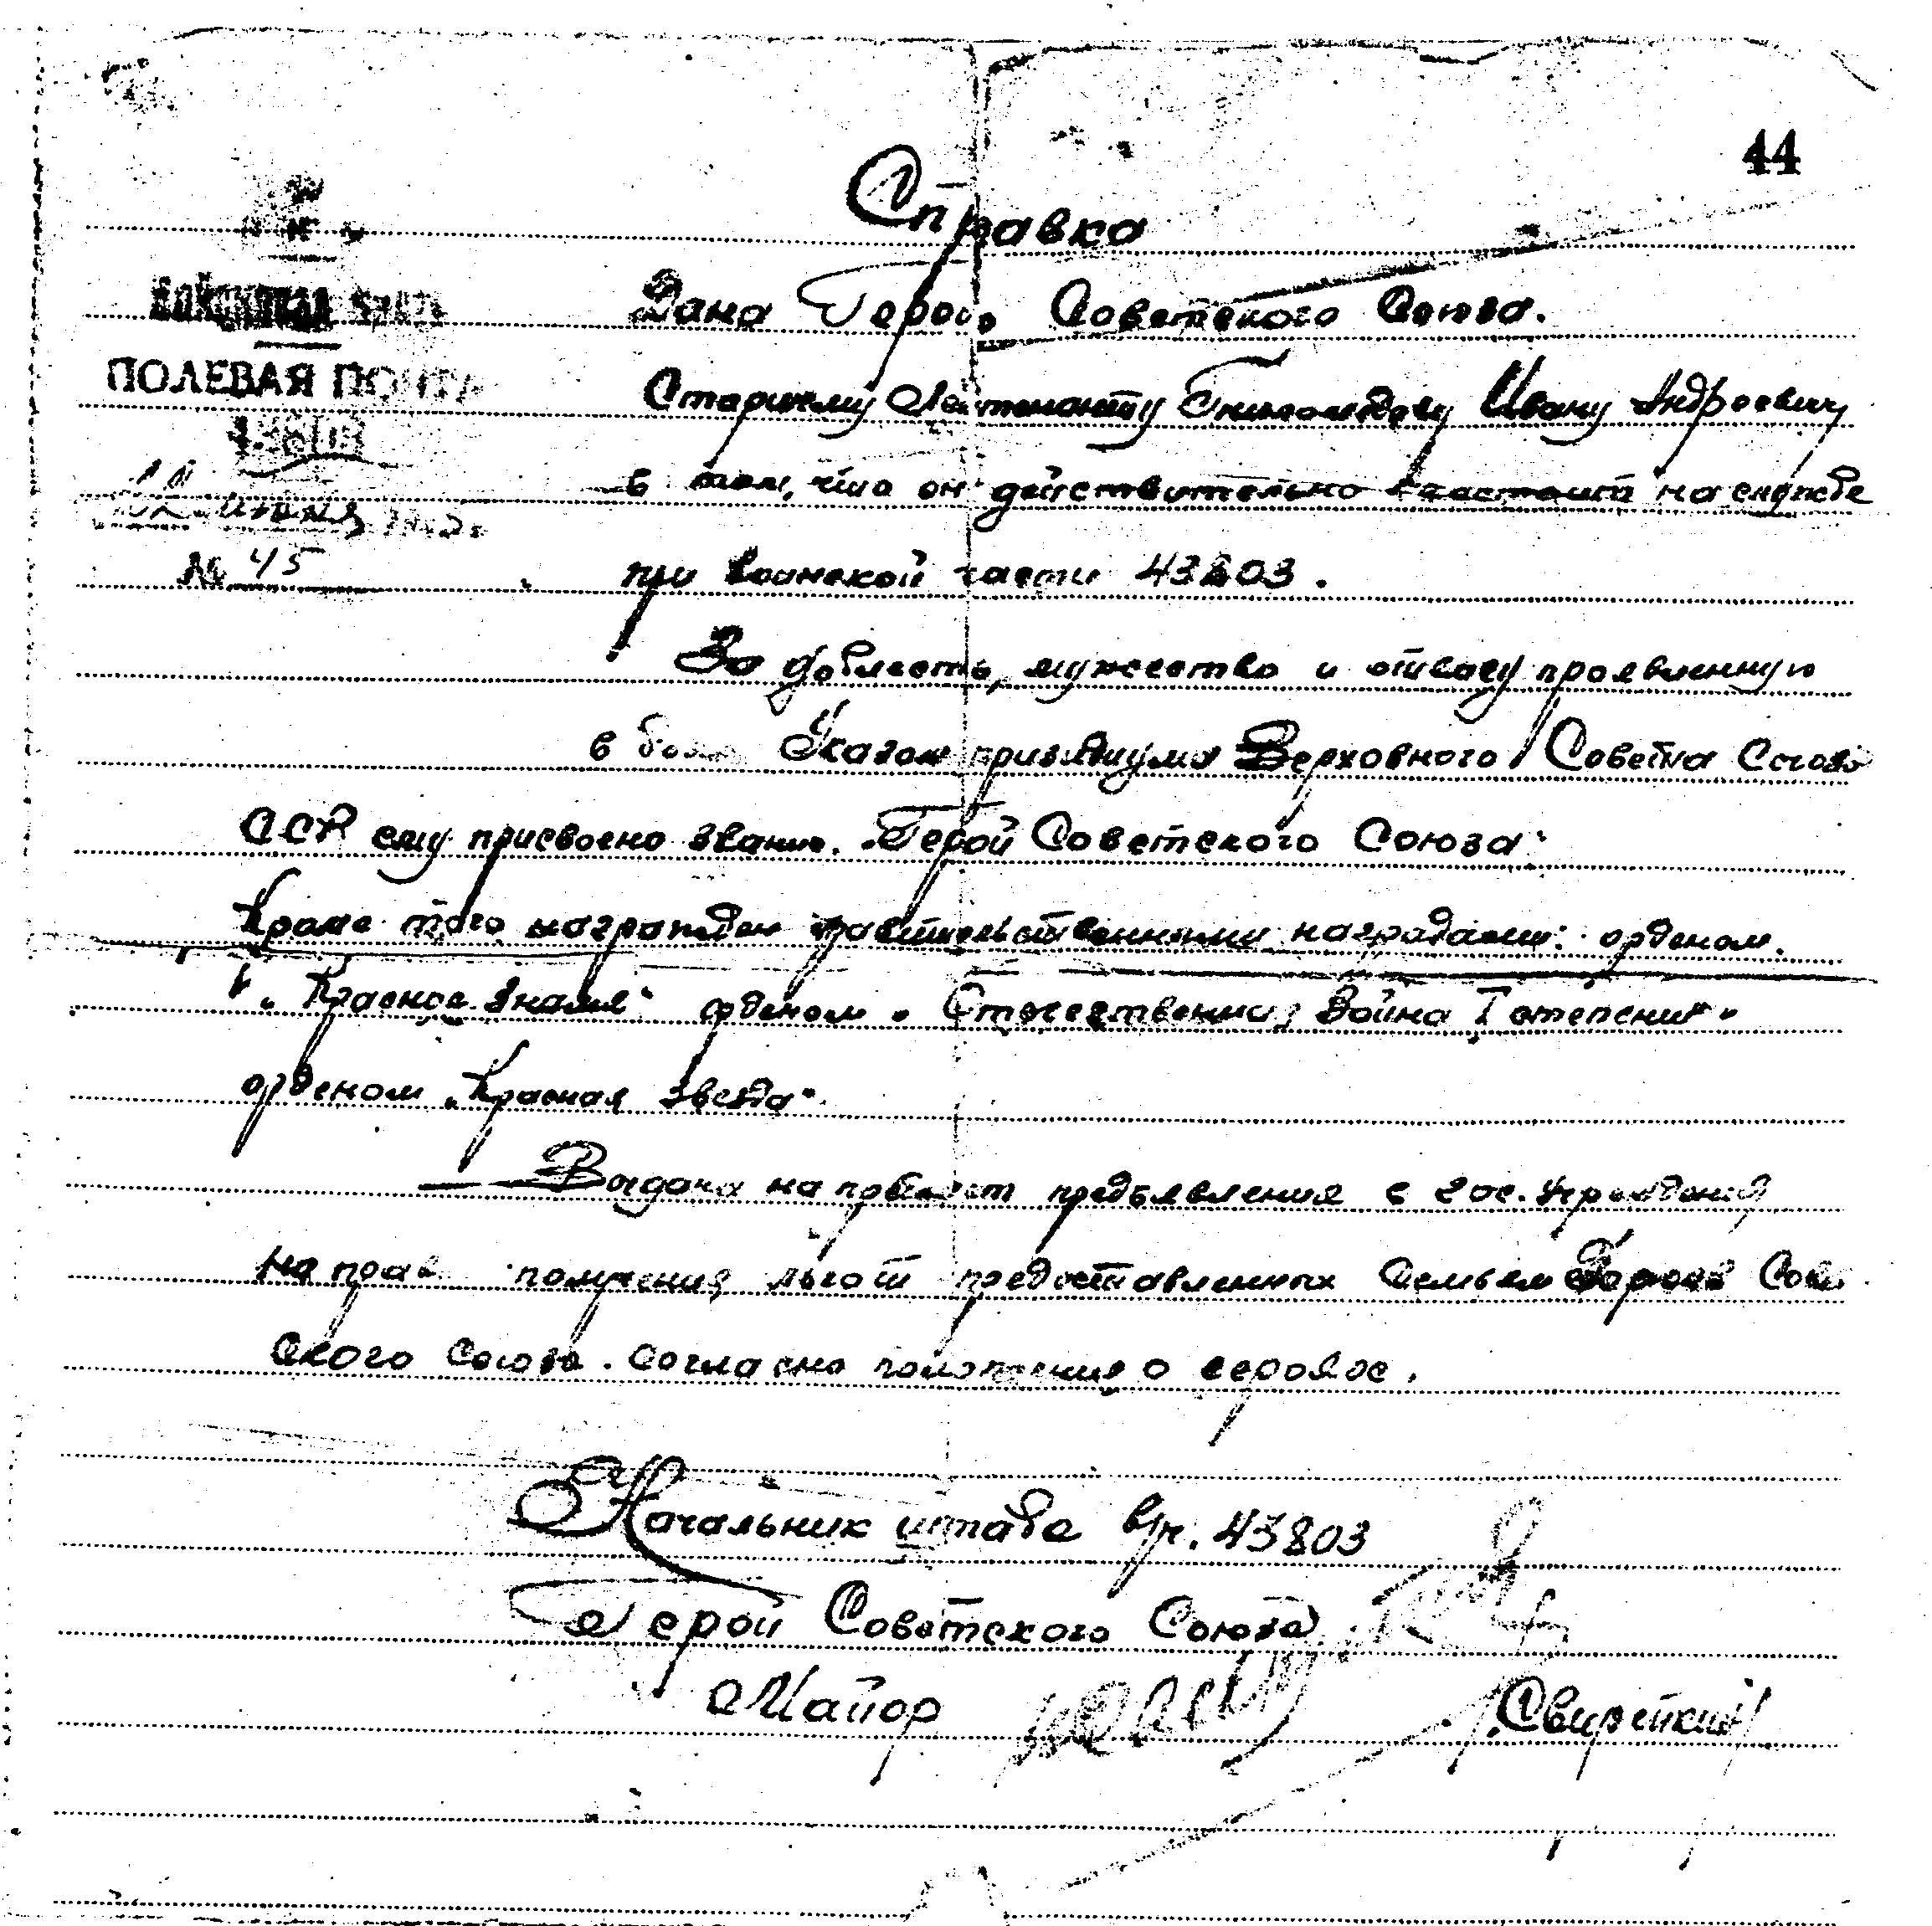 44
Справка
Дана Герою Советского Союза.
ПОЛЕВАЯ ПОЧТА
Старшему Лейтенанту Ивану Андреевичу
в том, что он действительно на службе
№ 45
при воинской части 43803.
За доблесть, мужество и отвагу проявленную
в боях Указом призидиума Верховного Совета Союза
ССР ему присвоено звание. „Герой Советского Союза"
Кроме того награжден правительственными наградами: орденом.
„Красное Знамя" орденом „Отечественная Война I степени"
орденом „Красная Звезда".
Выдана на предмет предъявления в гос. учреждения
на права получения льгот предоставленных Семьям Героев Сов
ского Союза. Согласно положения о героях.
Начальник штаба в/ч. 43803
Герой Советского Союза
Майор